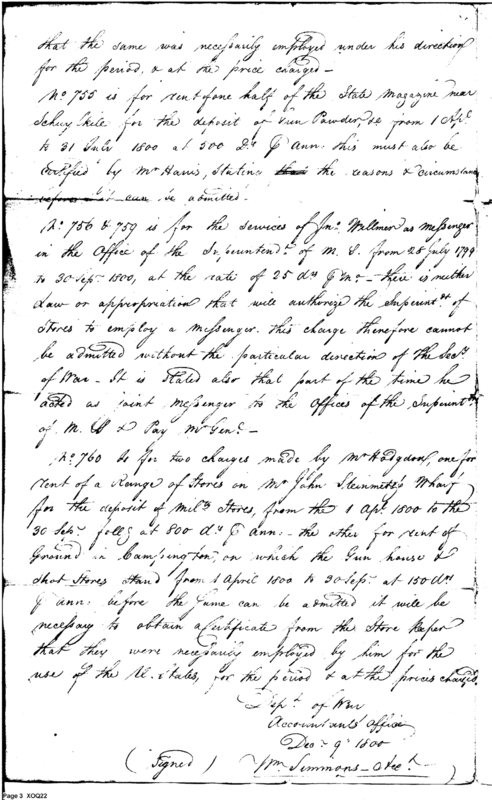 that the same was necessarily employed under his direction
for the period & at the price charged –
No. 755 is for rent of one half of the State Magazine near
Schuylkile for the deposit of Gun Powder &c from 1 Apl.
to 31 July 1800 at 500 Ds. ⅌ Ann: this must also be
Certified by Mr Harris, Stating the reasons & circumstances
before it can be admitted.
No. 756 & 759 is for the services of Jno. Wallmer as messenger
in the Office of the Superintendt. of M. S. from 28 July 1799
to 30 Sepr. 1800, at the rate of 25 drs ⅌ mo. – there is neither
Law or appropriation that will authorize the Superintt. of
Stores to employ a messenger. this charge therefore cannot
be admitted without the particular direction of the Secy.
of War – It is Stated also that part of the time he
acted as joint Messenger to the Offices of the Superintt.
of M. S & Pay Mr Genl. –
No. 760 is for two charges made by Mr Hodgdon, one for
rent of a Range of Stores on Mr John Steinmetz's Wharf
for the deposit of Mily. Stores, from the 1 Apl. 1800 to the
30 Sepr. follg at 800 ds. ⅌ Ann: – the other for rent of
Ground in Campington, on which the Gun house &
Shot Stores stand from 1 April 1800 to 30 Sepr. at 150 drs
⅌ ann: before the same can be admitted it will be
necessary to obtain a Certificate from the Store Keeper
that they were necessarily employed by him for the
use of the U. States, for the period & at the prices charged.
Dept. of War
Accountants Office
Decr. 9th 1800
(Signed) Wm Simmons – Acct.
Page 3 XOQ22